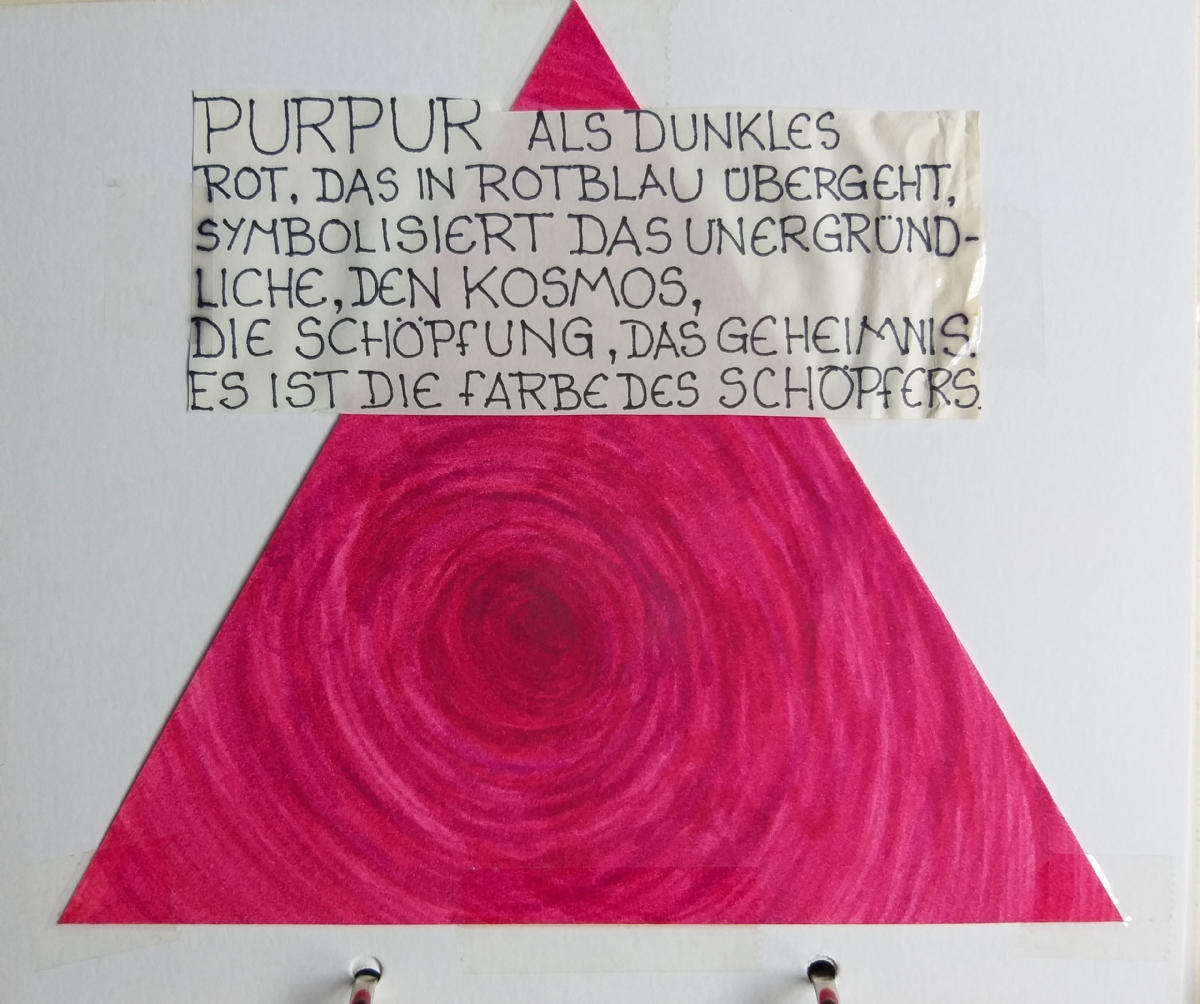 PURPUR ALS DUNKLES
ROT, DAS IN ROTBLAU ÜBERGEHT,
SYMBOLISIERT DAS UNERGRÜND-
LICHE, DEN KOSMOS,
DIE SCHÖPFUNG, DAS GEHEIMNIS.
ES IST DIE FARBE DES SCHÖPFERS.